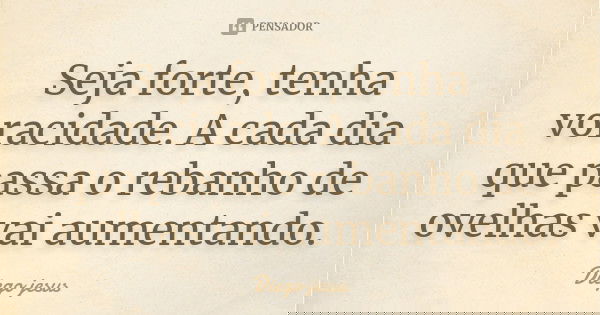 PENSADOR
Seja forte, tenha
voracidade. A cada dia
que passa o rebanho de
ovelhas vai aumentando.
Diego jesus